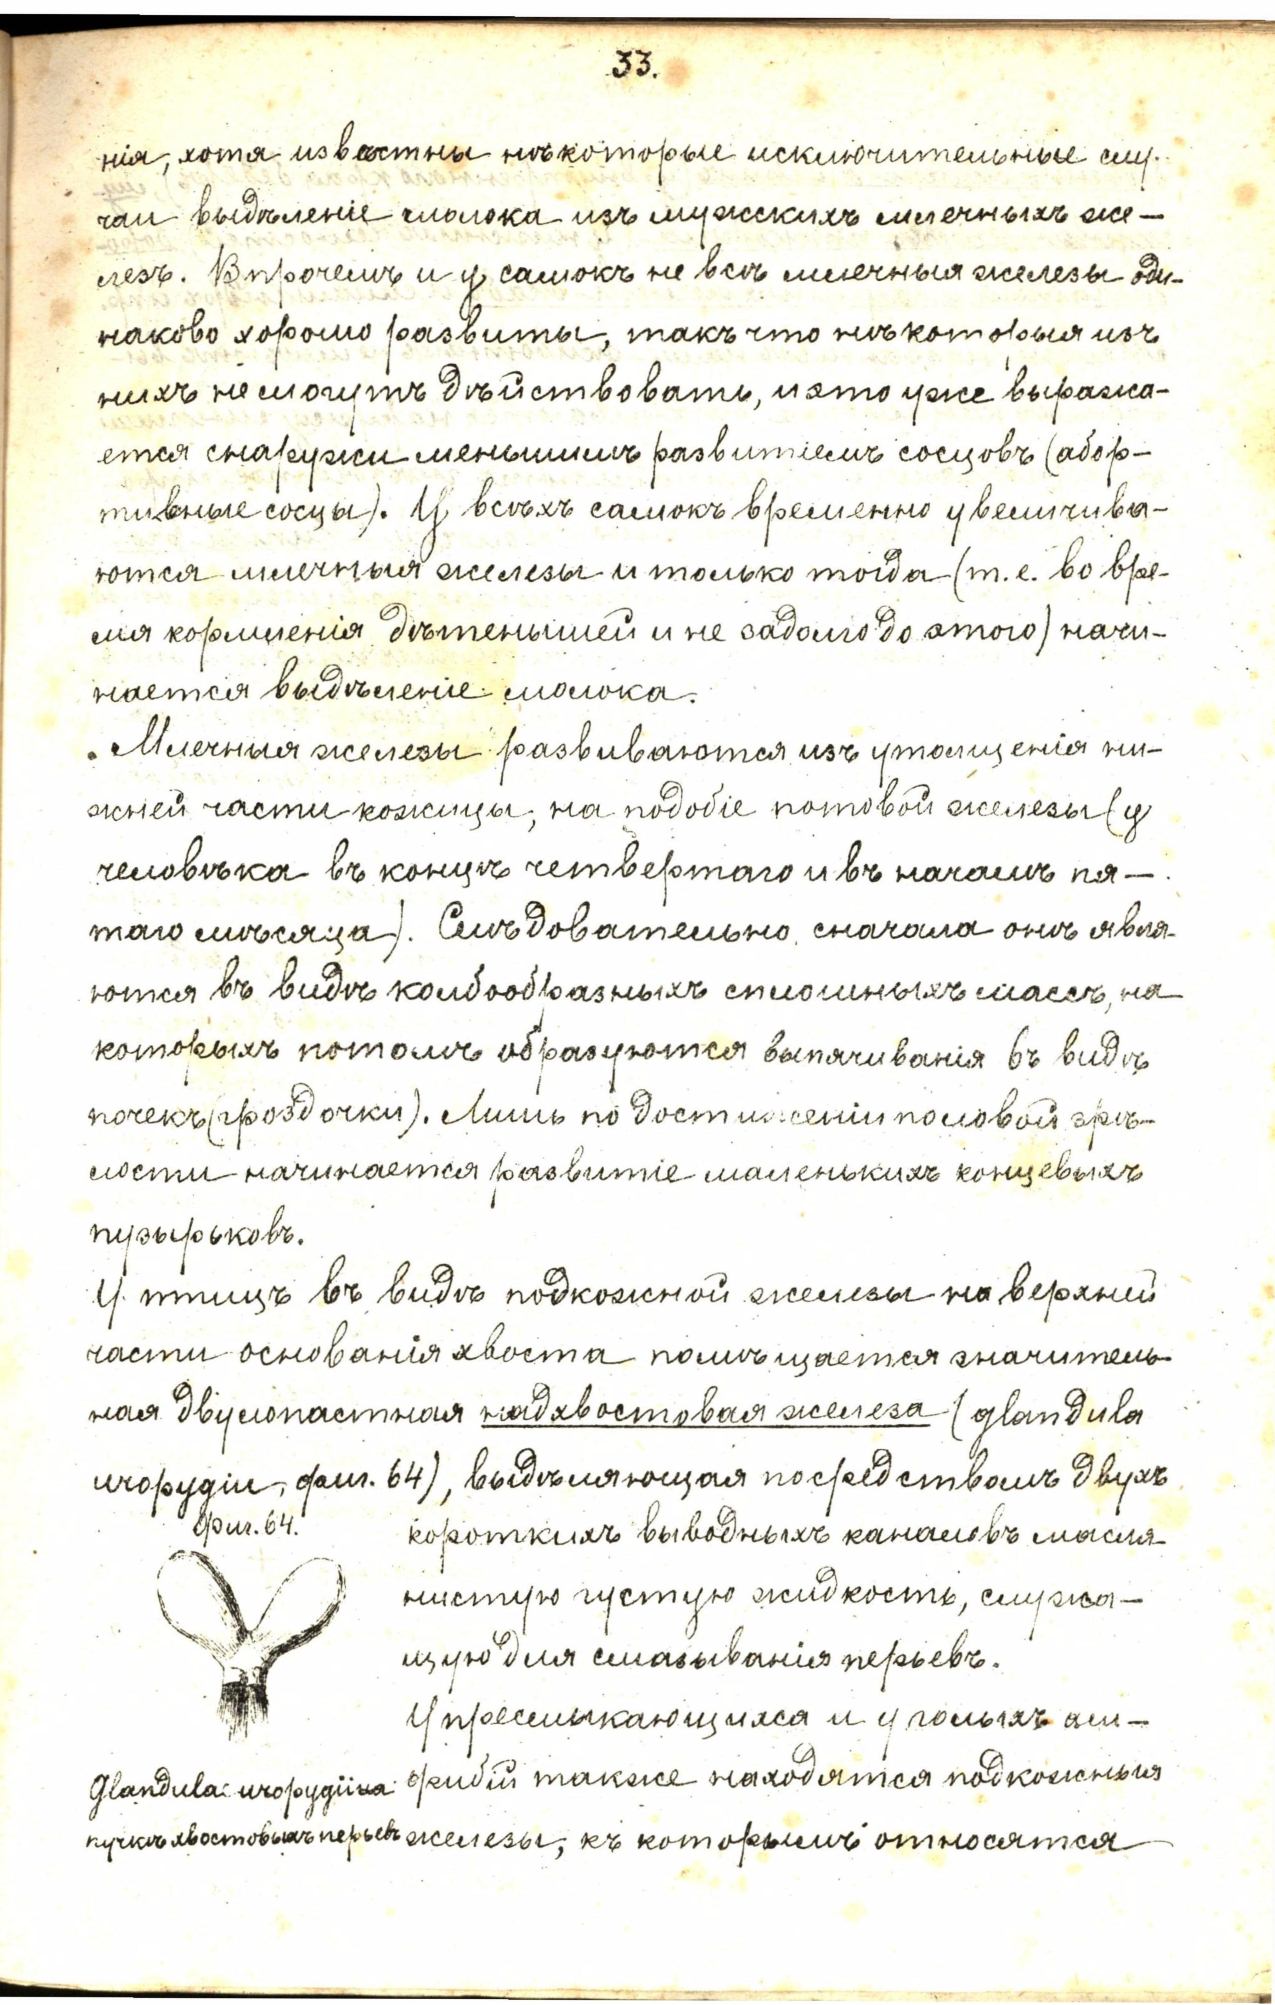 33.
нія, хотя извѣстны нѣкоторые исключительные слу-
чаи выдѣленіе молока изъ мужскихъ млечныхъ же-
лезъ. Впрочемъ и у самокъ не всѣ млечныя железы оди-
наково хорошо развиты, такъ что нѣкоторыя изъ
нихъ не могутъ дѣйствовать, и это уже выража-
ется снаружи меньшимъ развитіемъ сосцовъ (абор-
тивные сосцы). У всѣхъ самокъ временно увеличива-
ются млечныя железы и только тогда (т.е. во вре-
мя кормленія дѣтенышей и не задолго до этого) начи-
нается выдѣленіе молока.
Млечныя железы развиваются изъ утолщенія ни-
жней части кожицы, на подобіе потовой железы (у
человѣка въ концѣ четвертаго и въ началѣ пя-
таго мѣсяца). Слѣдовательно сначала онѣ явля-
ются въ видѣ колбообразныхъ сплошныхъ массъ, на
которыхъ потомъ образуются выпячиванія въ видѣ
почекъ (гроздочки). Лишь по достиженіи половой зрѣ-
лости начинается развитіе маленькихъ концевыхъ
пузырьковъ.
У птицъ въ видѣ подкожной железы на верхней
части основанія хвоста помѣщается значитель-
ная двулопастная надхвостовая железа (glandula
uropygii, фиг. 64), выдѣляющая посредствомъ двухъ
фиг. 64.
короткихъ выводныхъ каналовъ масля-
нистую густую жидкость, служа-
щую для смазыванія перьевъ.
У пресмыкающихся и у голыхъ ам-
фибій также находятся подкожныя
железы, къ которымъ относятся
Glandula uropygii на
пучкѣ хвостовыхъ перьевъ